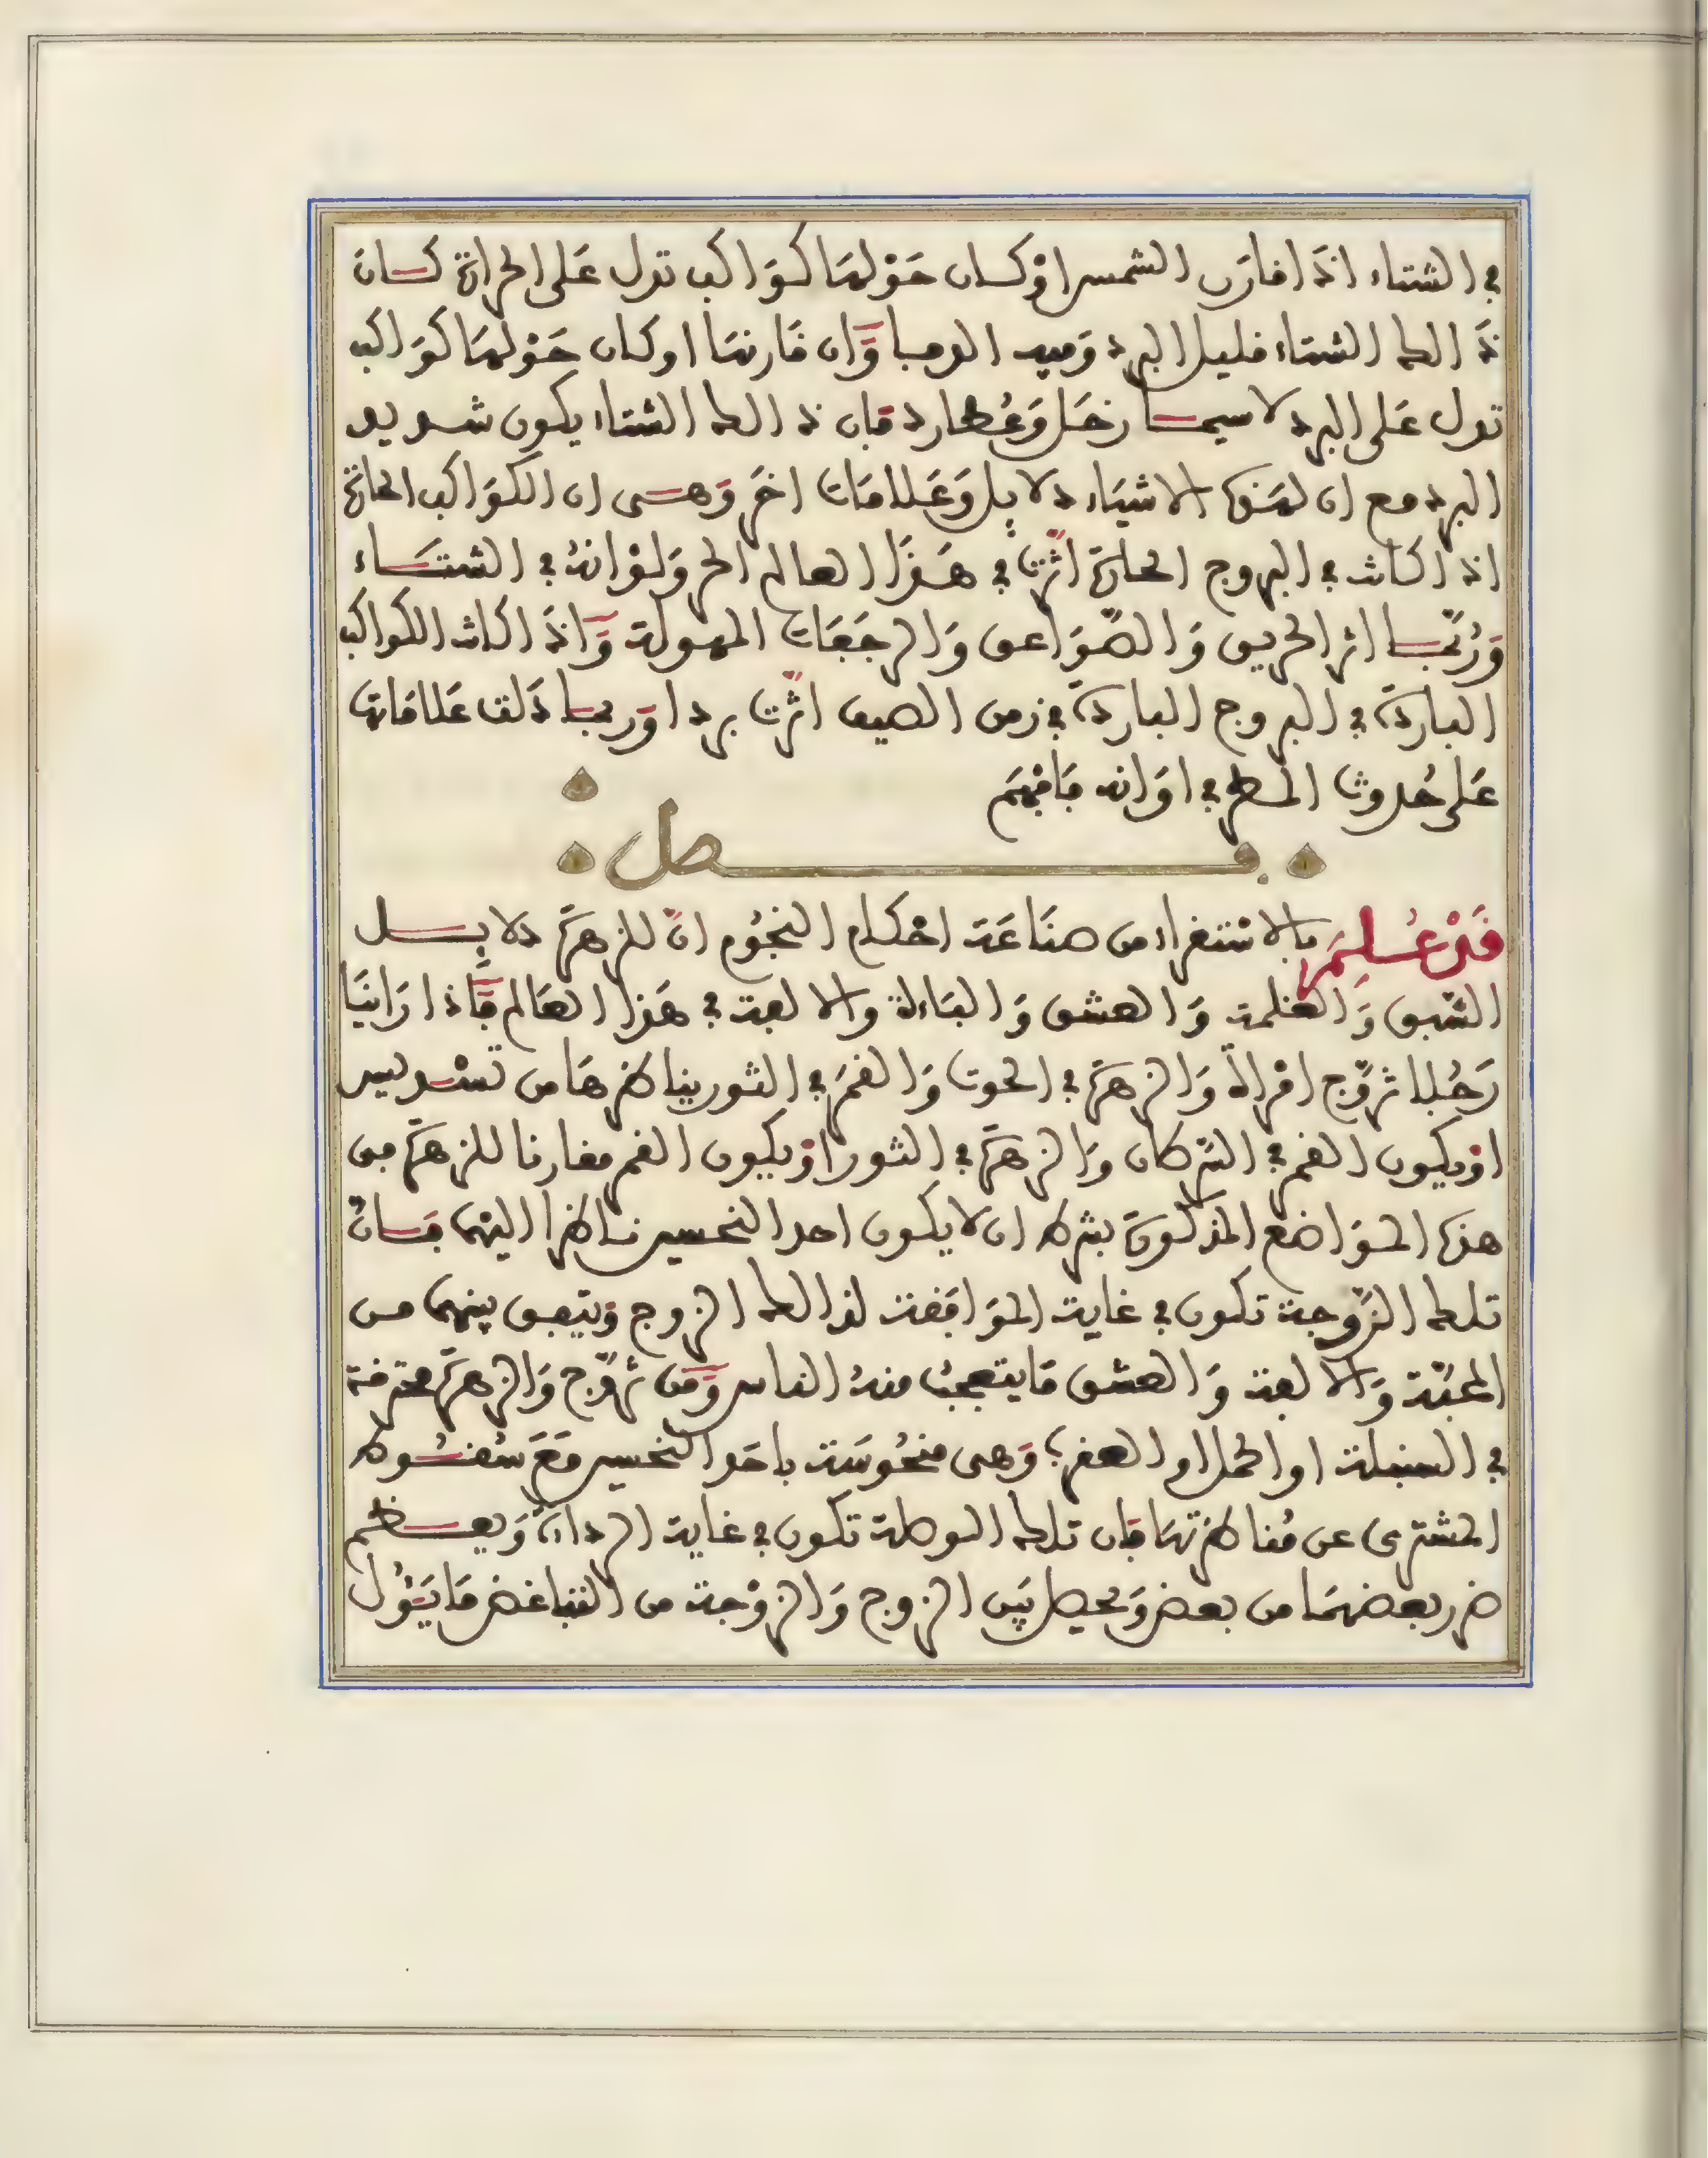 في الشتاء اذَا فارَن الشمس اوْ كان حَوْلهَا كوَاكب تدل عَلى الحرارة كان
ذَالك الشتاء قليل البرد وَفيه الوبا وَّان قَارنهَا او كان حَوْلهَا كوَاكب
تدل عَلى البرد لا سيما زحَل وَعُطارد فان ذالك الشتاء يكون شديد
البرد مع ان لهَذه الاشيَاء دلايل وَعَلامَات اخرَ وَهى ان الكوَاكب الحارة
اذا كانت في البروج الحارة اثّرت في هَذَا العالم الحر وَلوْ انهُ في الشتَاء
وَرُبّما اثر الحريق وَالصّوَاعق وَالرجَفَات المهولة وَّاذَا كانت الكواكب
الباردَة في البروج الباردَة في زمن الصيف اثّرت بردا وَربما دَلت عَلامَاتها
عَلى حُدوث المطر في اوَانه فَافهَم
فصل
قَدْ عُلِمَ بالاسْتقراء من صنَاعَة احْكام النجُوم انّ للزهرَة دلايِل
الشّبق وَالغلمة وَالعشق وَالبَاءة وَالالفة في هَذا العَالم فَّاذا رَاينَا
رَجُلا تزوّج امْراة وَالزهرَة في الحوت وَالقمرَ في الثور يناظرهَا من تسْديس
اوْ يكون القمر في السّرطان وَالزهرَة في الثور اوْ يكون القمر مقارنا للزهرَة من
هذه الموَاضع المذكورَة بشرط ان لا يكون احد النحسين ناظرا اليهما فانّ
تلك الزّوجة تكون في غاية الموَافَقة لذالك الزوج وَيتفق بينهما من
المحبّة وَالالفة وَالعشق مَا يتعجبُ منهُ الناس وَّمَن تزوّج وَالزهرَة محترقة
في السنبلة او الحمل او العقرب وَهى منحُوسَة باحَد النحسين مَعَ سُقُوط
المشترى عن مُناظرَتهَا فان تلك الوصلة تكون في غاية الرداءَة وَيعظم
ضرر بعضهمَا من بعض وَيحصل بَين الزوج وَالزوْجة من التباغض مَا يَئُول